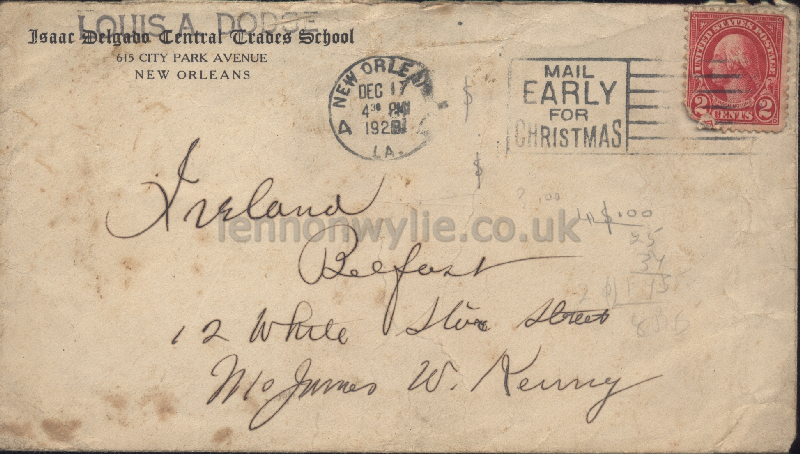 LOUIS A. DODGE
Isaac Delgado Central Trades School
615 CITY PARK AVENUE
NEW ORLEANS
NEW ORLEANS
DEC 17
4 30 PM
192
LA.
MAIL
EARLY
FOR
CHRISTMAS
UNITED STATES POSTAGE
2 CENTS 2
Ireland
Belfast
lennonwylie.co.uk
12 White Street
James W. Kenny
$
$